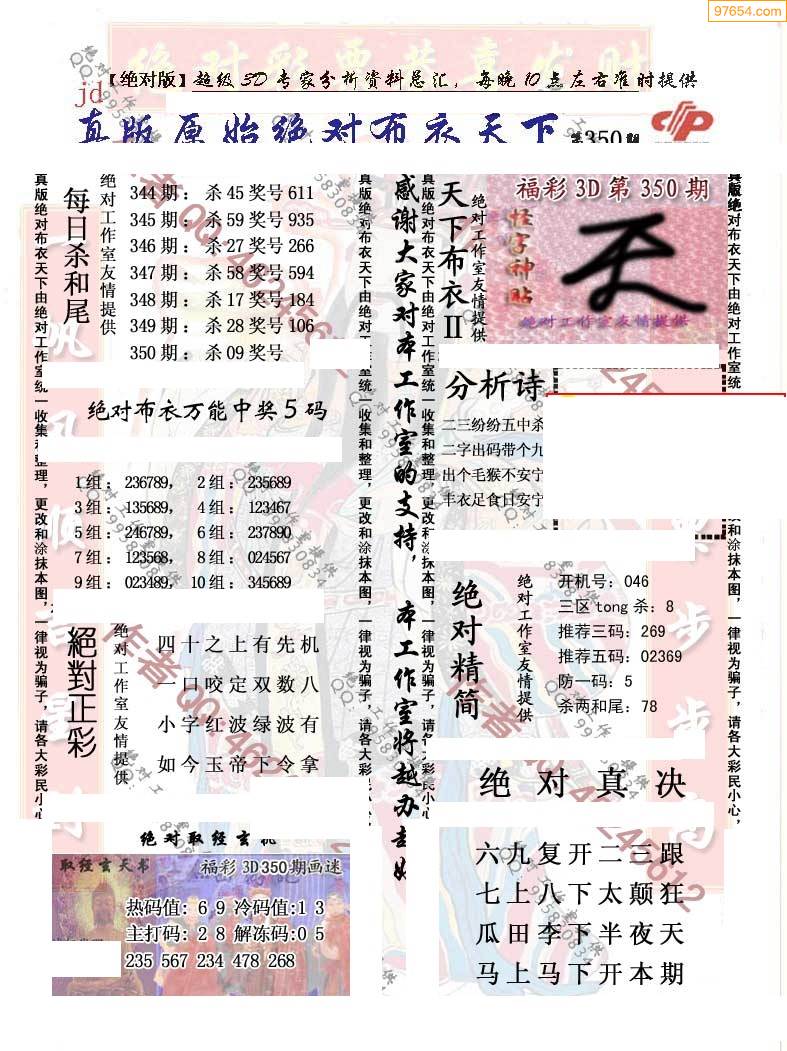 97654.com
【绝对版】超级3D专家分析资料总汇，每晚10点左右准时提供
jd
真版原始绝对布衣天下
第350期
真版绝对布衣天下由绝对工作室统一收集和整理，更改和涂抹本图，一律视为骗子，请各大彩民小心，
每日杀和尾
绝对工作室友情提供
344期：杀45奖号611
345期：杀59奖号935
346期：杀27奖号266
347期：杀58奖号594
348期：杀17奖号184
349期：杀28奖号106
350期：杀09奖号
绝对布衣万能中奖5码
1组：236789，2组：235689
3组：135689，4组：123467
5组：246789，6组：237890
7组：123568，8组：024567
9组：023489，10组：345689
絕對正彩
绝对工作室友情提供
四十之上有先机
一口咬定双数八
小字红波绿波有
如今玉帝下令拿
绝对取经玄机
取经玄天书
福彩3D350期画迷
热码值：6 9 冷码值:1 3
主打码：2 8 解冻码:0 5
235 567 234 478 268
真版绝对布衣天下由绝对工作室统一收集和整理，更改和涂抹本图，一律视为骗子，请各大彩民小心，
感谢大家对本工作室的支持，本工作室将越办越好
真版绝对布衣天下由绝对工作室统一收集和整理，更改和涂抹本图，一律视为骗子，请各大彩民小心
天下布衣II
绝对工作室友情提供
福彩3D第350期
怪字神贴
绝对工作室友情提供
分析诗
二三纷纷五中杀
二字出码带个九
出个毛猴不安宁
丰衣足食日安宁
绝对精简
绝对工作室友情提供
开机号：046
三区tong杀：8
推荐三码：269
推荐五码：02369
防一码：5
杀两和尾：78
绝对真决
六九复开二三跟
七上八下太颠狂
瓜田李下半夜天
马上马下开本期
真版绝对布衣天下由绝对工作室统一收集和整理，更改和涂抹本图，一律视为骗子，请各大彩民小心，